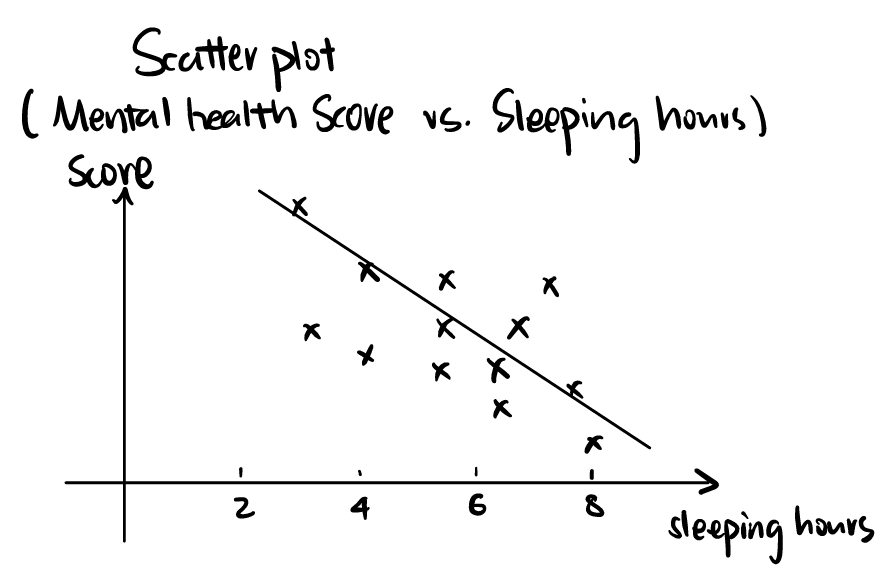 Scatter plot
(Mental health Score vs. Sleeping hours)
Score
2 4 6 8
sleeping hours